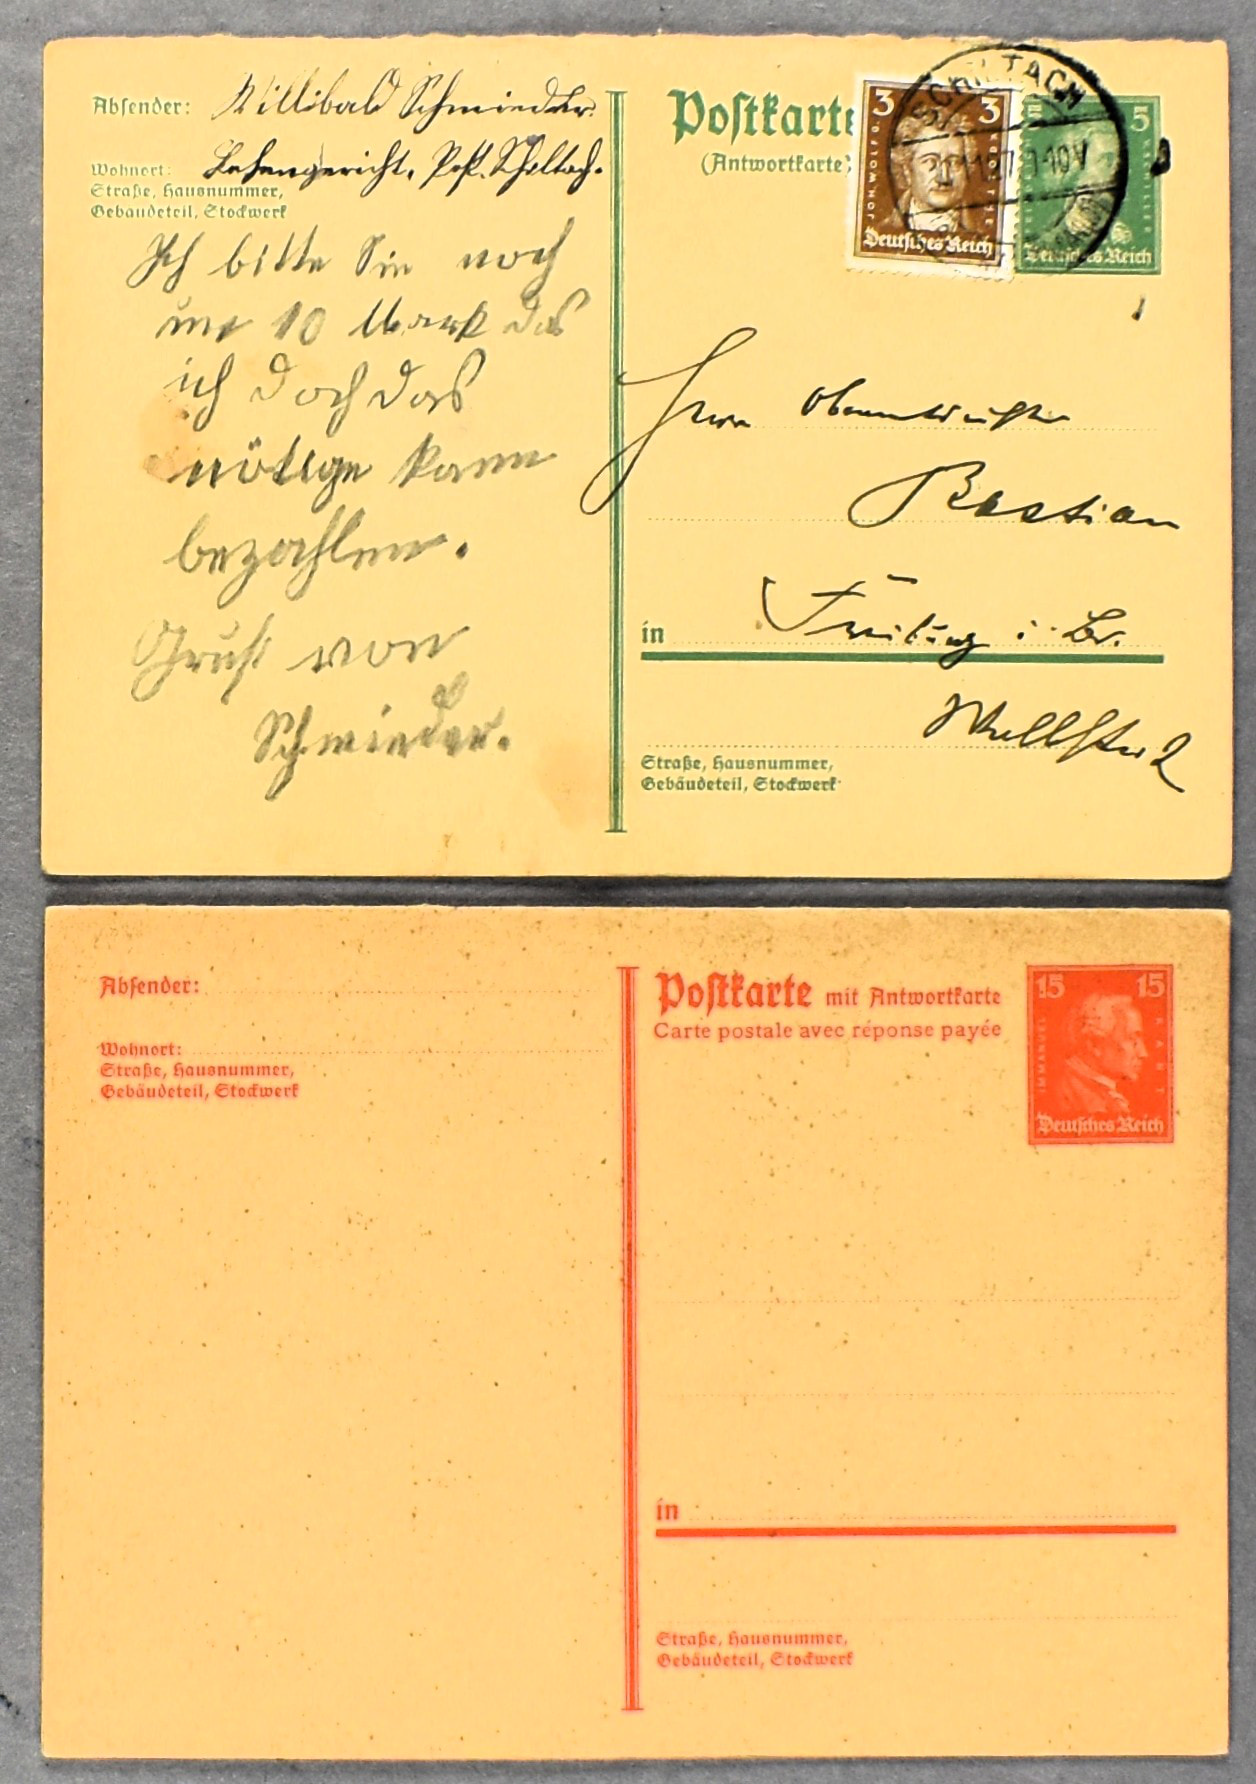 Absender: Willibald Schmieder.
Wohnort: Lehengericht. Post. Schiltach.
Straße, Hausnummer,
Gebäudeteil, Stockwerk
Ich bitte Sie noch
um 10 Mark das
ich doch das
nötige kann
bezahlen.
Gruß von
Schmieder.
Postkarte
(Antwortkarte)
3 3
J.W.V.GOETHE
Deutsches Reich
5
Deutsches Reich
SCHILTACH
9-10V
Herrn
Bastian
in Freiburg i. Br.
2
Straße, Hausnummer,
Gebäudeteil, Stockwerk
Absender:
Wohnort:
Straße, Hausnummer,
Gebäudeteil, Stockwerk
Postkarte mit Antwortkarte
Carte postale avec réponse payée
15 15
IMMANUEL KANT
Deutsches Reich
in
Straße, Hausnummer,
Gebäudeteil, Stockwerk